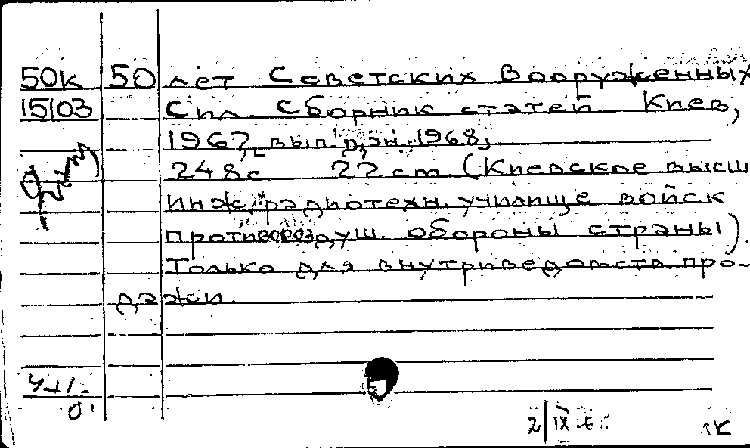 50к 50 лет Советских Вооруженных
15103 Сил. Сборник статей. Киев,
1967, вып. дан. 1968,
248с. 22 cm (Киевское высш.
инж. радиотехн. училище войск
противовоздуш. обороны страны).
Только для внутриведомств. про-
дажи.
2/IX